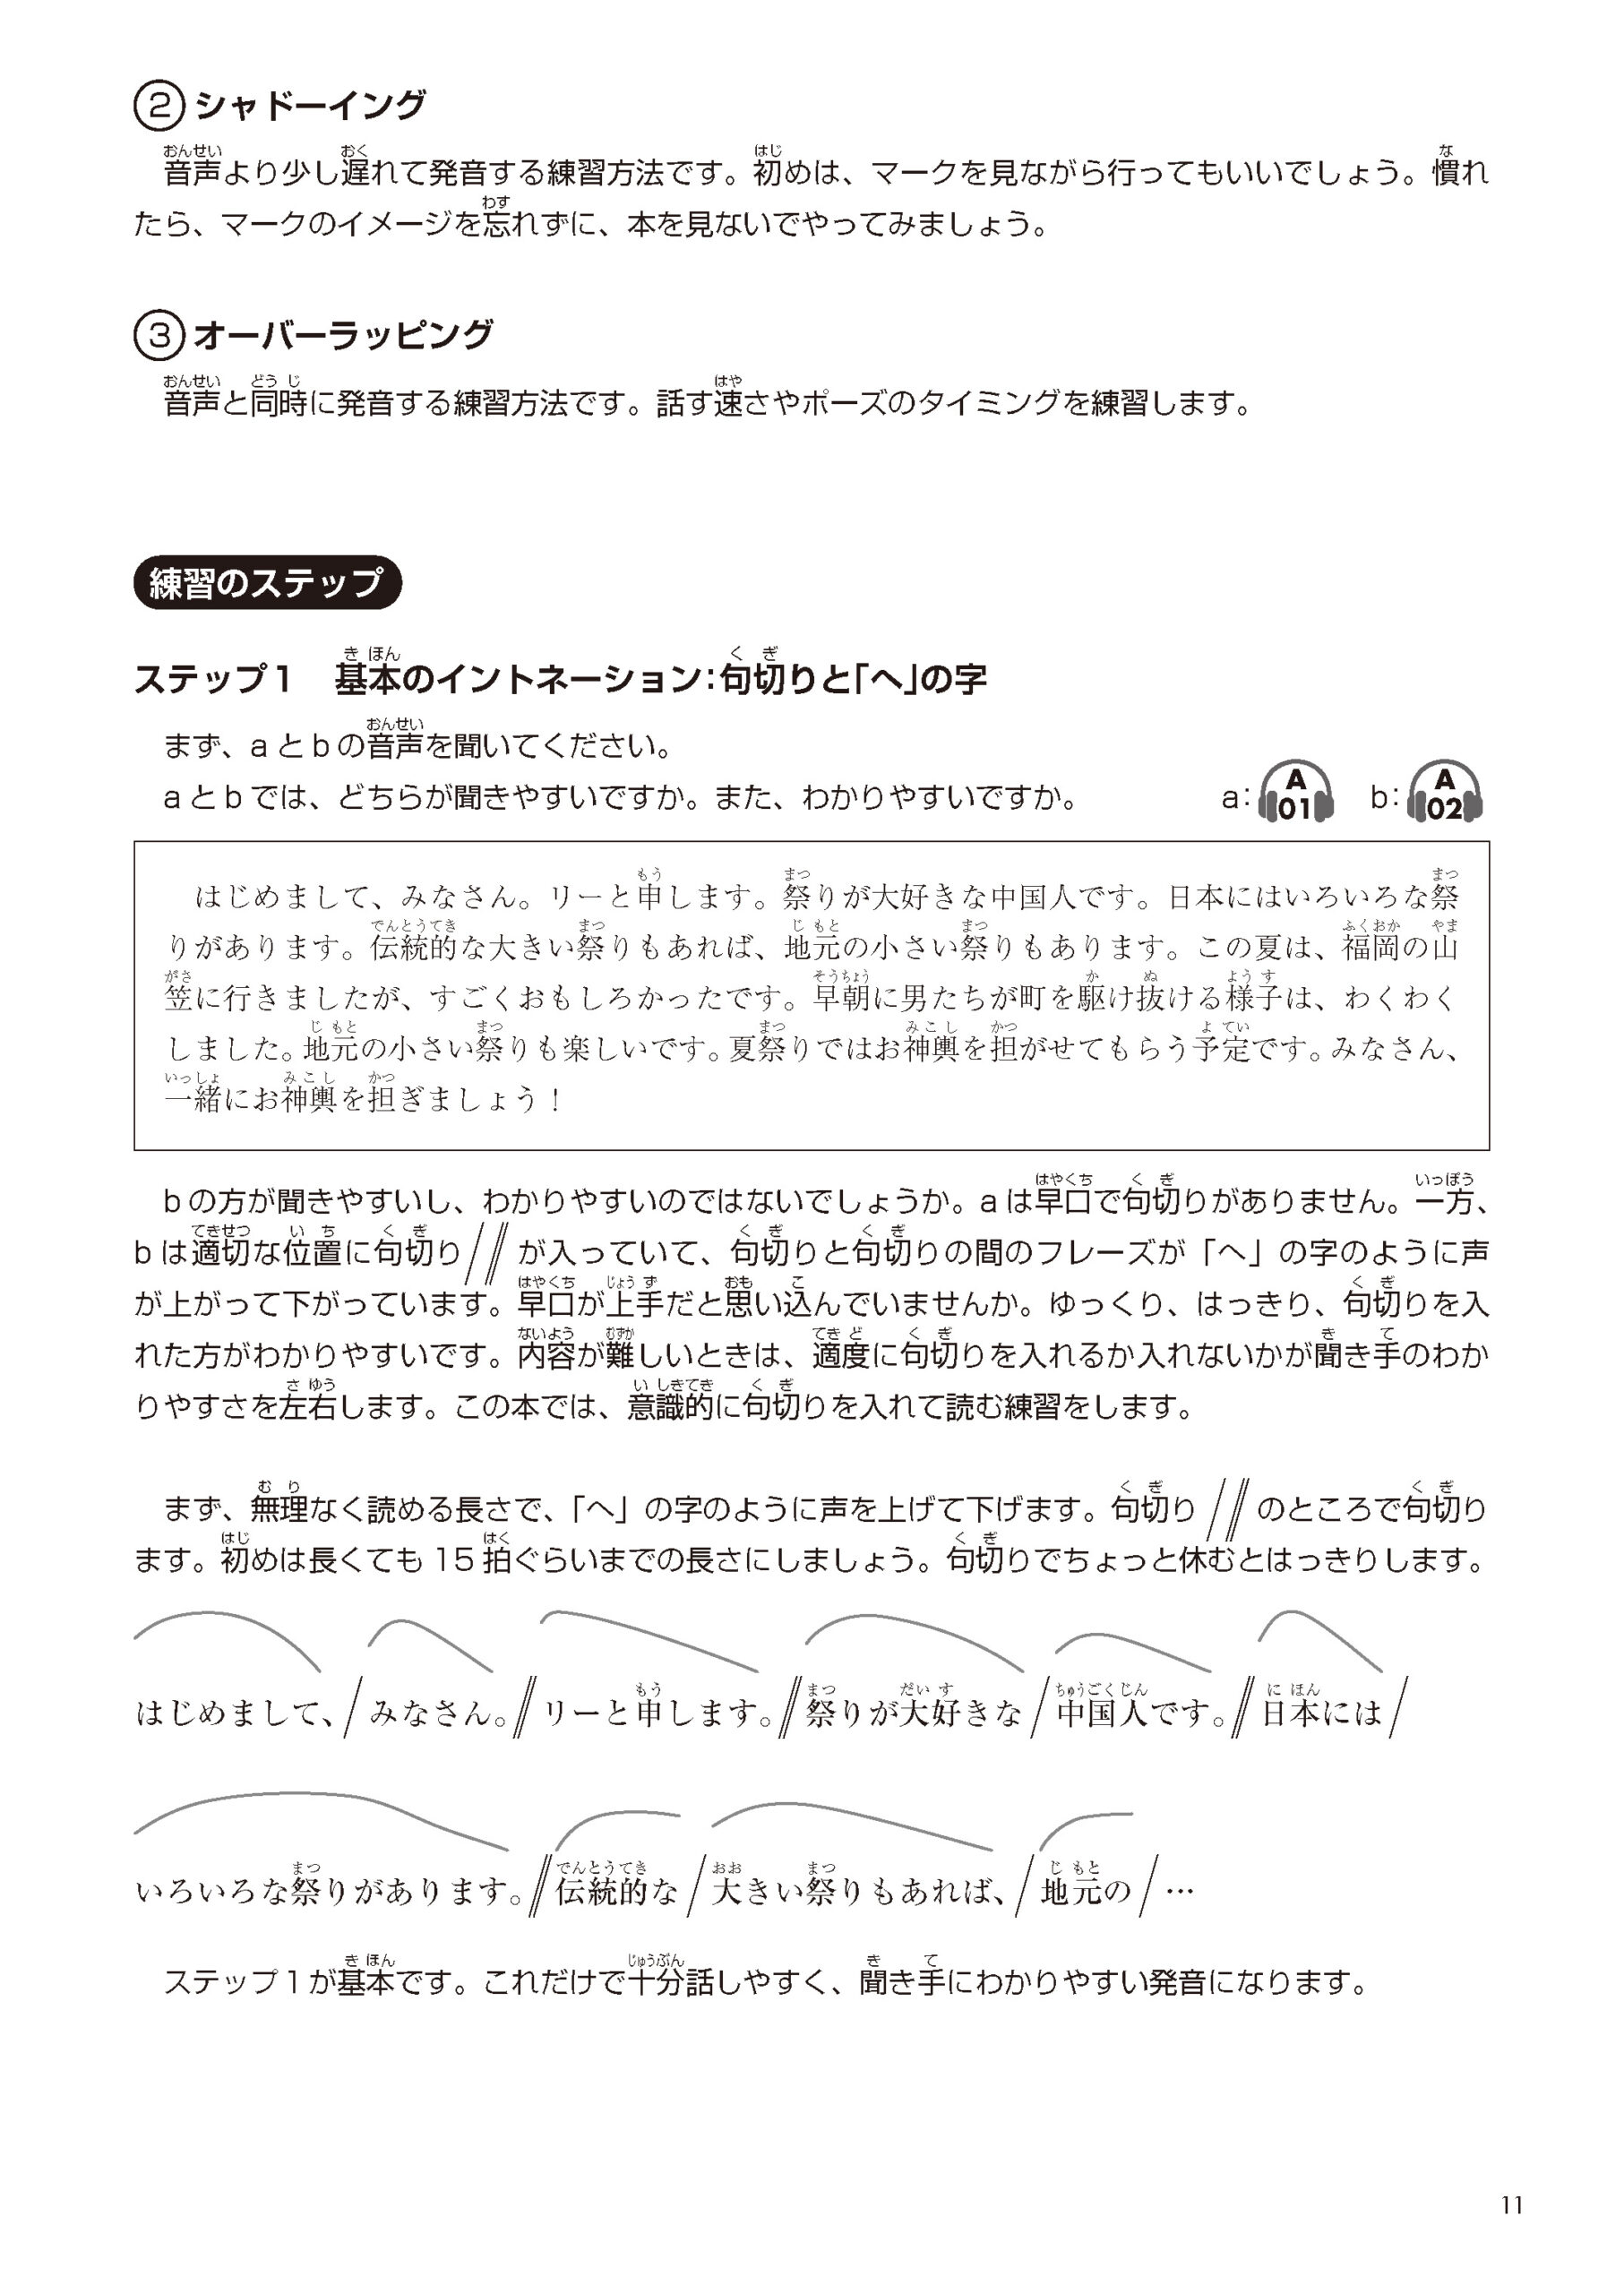 ② シャドーイング
音声より少し遅れて発音する練習方法です。初めは、マークを見ながら行ってもいいでしょう。慣れ
たら、マークのイメージを忘れずに、本を見ないでやってみましょう。
③ オーバーラッピング
音声と同時に発音する練習方法です。話す速さやポーズのタイミングを練習します。
練習のステップ
ステップ1　基本のイントネーション：句切りと「へ」の字
まず、aとbの音声を聞いてください。
aとbでは、どちらが聞きやすいですか。また、わかりやすいですか。　a: A 01　b: A 02
はじめまして、みなさん。リーと申します。祭りが大好きな中国人です。日本にはいろいろな祭
りがあります。伝統的な大きい祭りもあれば、地元の小さい祭りもあります。この夏は、福岡の山
笠に行きましたが、すごくおもしろかったです。早朝に男たちが町を駆け抜ける様子は、わくわく
しました。地元の小さい祭りも楽しいです。夏祭りではお神輿を担がせてもらう予定です。みなさん、
一緒にお神輿を担ぎましょう！
bの方が聞きやすいし、わかりやすいのではないでしょうか。aは早口で句切りがありません。一方、
bは適切な位置に句切り / // が入っていて、句切りと句切りの間のフレーズが「へ」の字のように声
が上がって下がっています。早口が上手だと思い込んでいませんか。ゆっくり、はっきり、句切りを入
れた方がわかりやすいです。内容が難しいときは、適度に句切りを入れるか入れないかが聞き手のわか
りやすさを左右します。この本では、意識的に句切りを入れて読む練習をします。
まず、無理なく読める長さで、「へ」の字のように声を上げて下げます。句切り / // のところで句切り
ます。初めは長くても15拍ぐらいまでの長さにしましょう。句切りでちょっと休むとはっきりします。
はじめまして、/ みなさん。// リーと申します。// 祭りが大好きな / 中国人です。// 日本には /
いろいろな祭りがあります。// 伝統的な / 大きい祭りもあれば、/ 地元の / …
ステップ1が基本です。これだけで十分話しやすく、聞き手にわかりやすい発音になります。
11